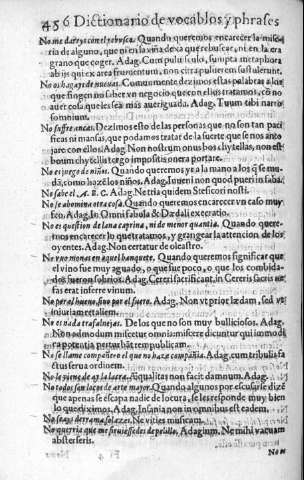 456 Dictionario de vocablos y phrases
No me darays con el rebusco. Quando queremos encarecer la mise-
ria de alguno, que ni en la viña de xa que rebuscar, ni en la era
grano que coger. Adag. Cum pulusculo, sumpta metaphora
ab ijs qui ex area frumentum, non citra puluerem sustulerunt.
No os hagays de nueuas. Comunmente dezimos estas palabras a los
que fingen no saber vn negocio que con ellos tratamos, cō no
auer cosa que les sea más aueriguada. Adag. Tuum tibi narro
somnium.
No suffre ancas. Dezimos esto de las personas que no son tan pac
ificas ni mansas, que podamos tratar de la suerte que se nos anto
jare con ellos. Adag. Non nostrum onus bos chytellas, non est
bouum chytellis tergo impositis onera portare.
No es juego de niños. Quando queremos yr a la mano a los q̃ se mu-
dā, como haze los niños. Adag. Iuueni non quod pueri in faba.
No sabe el .A. B. C. Adag. Ne tria quidem Stesicori nosti.
No se abomina otra cosa. Quando queremos encarecer vn caso muy
feo. Adag. In Omni fabula & Dædali execratio.
No es question de lana caprina, ni de menor quantia. Quando quere-
mos encarecer lo que tratamos, y grangear la attencion de los
oyentes. Adag. Non certatur de oleastro.
No vno monas en aquel banquete. Quando queremos significar que
el vino fue muy aguado, o que fue poco, o que los combida-
dos fueron sobrios. Adag. Cereri sacrificant, in Cereris sacris ne
fas erat inferre vinum.
No por el hueuo, sino por el fuero. Adag. Non vt prior lædam, sed vt
iniuriam retaliem.
No es nada trafalmejas. De los que no son muy bulliciosos. Adag.
Non admodum miscetur omnia miscere dicuntur qui immodi
ca potentia perturbāt rem publicam.
No se llame compañero el que no haze compañia. Adag. cum tribulis fa
ctus serua ordinem.
No le viene de ay la lucra. Æqualitas non facit damnum. Adag.
No todos son locos de arte mayor. Quando algunos por escusarse dize
que apenas se escapa nadie de locura, se les responde muy bien
lo que diximos. Adag. Insania non in omnibus est eadem.
No seays derrama solazes. Ne vities musicam.
No querria que me siruiessedes de pelillo. Adagium. Ne mihi vacuam
abstersèris.
No te